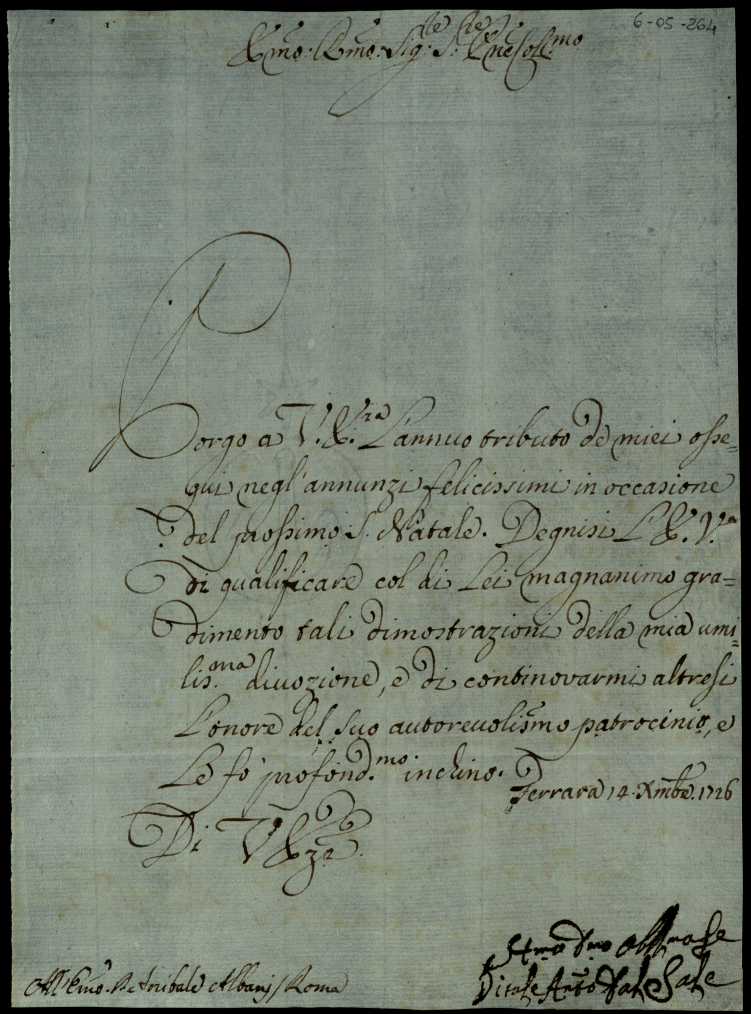 6-05-264
Emo: Rmo: Sig:re S.re Pne Col.mo
Porgo a V. E.za L'annuo tributo de miei osse=
qui negl'annunzi felicissimi in occasione
del prossimo S. Natale. Degnisi L'E. V.a
di qualificare col di Lei magnanimo gra=
dimento tali dimostrazioni della mia umi=
lis.ma divozione, e di continovarmi altresi
L'onore del suo autorevolismo patrocinio, e
Le fò profond.mo inchino.
Ferrara 14. Xmbre. 1726
Di V Eza
Vitale Anto dal Sale
All' Emo. Anibale Albanj / Roma